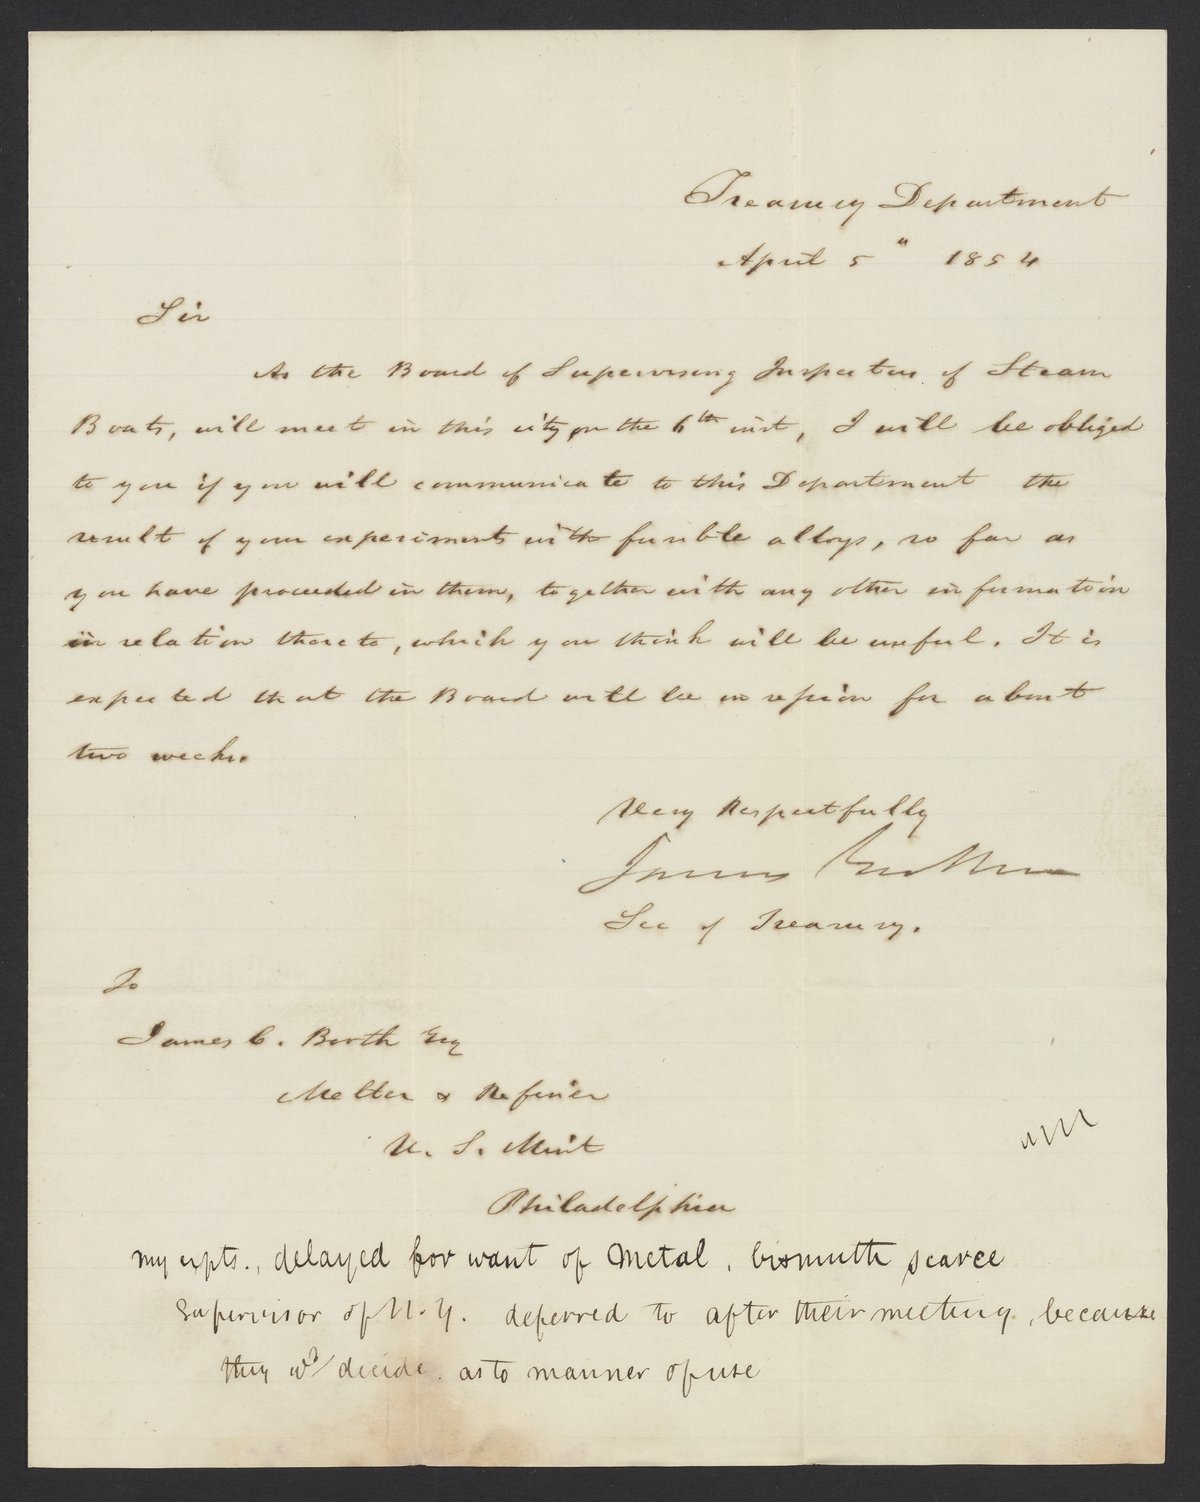 Treasury Department
April 5" 1854
Sir
As the Board of Supervising Inspectors of Steam
Boats, will meet in this city on the 6th inst, I will be obliged
to you if you will communicate to this Department the
result of your experiments with fusible alloys, so far as
you have proceeded in them, together with any other information
in relation thereto, which you think will be useful. It is
expected that the Board will be in session for about
two weeks.
Very Respectfully
James Guthrie
Sec of Treasury.
To
James C. Booth Esq
Melter & Refiner
U. S. Mint
Philadelphia
my expts., delayed for want of Metal, bismuth scarce
Supervisor of N.Y. deferred to after their meeting, because
they wd decide as to manner of use